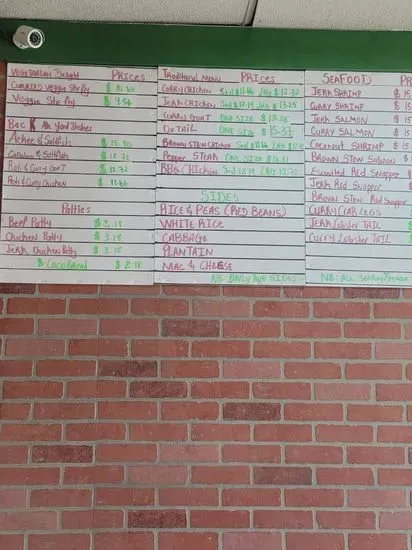 Vegetarian Delight PRICES
CURRIED Veggie Stir fry $ 10.60
Veggie Stir fry $ 9.54
Back Ah Yard Dishes
Ackee & Saltfish $ 15.90
Callaloo & Saltfish
Roti & Curry GOAT $ 12.72
Roti & Curry Chicken $ 11.66
Patties
Beef Patty $ 3.18
Chicken Patty $ 3.18
Jerk Chicken Patty $ 3.18
& Coco Bread $
Traditional MENU PRICES
CURRY CHICKEN Sml $ 11.66 LRG $ 12.72
Jerk CHICKEN Sml $ 12.19 LRG $ 13.25
Curry GOAT ONE SIZE $ 13.25
OXTAIL ONE SIZE $ 15.37
BROWN STEW CHICKEN Sml $ 11.66 LRG $ 12.72
Pepper STEAK ONE SIZE
BBQ CHICKEN Sml $ 12.19 LRG
SIDES
RICE & PEAS (RED BEANS)
WHITE RICE
CABBAGE
PLANTAIN
MAC & CHEESE
NB: ONLY TWO SIDES
SEAFOOD PR
Jerk SHRIMP $ 15
CURRY SHRIMP $ 15
Jerk SALMON $
CURRY SALMON $
Coconut SHRIMP $ 15
BROWN STEW SALMON $
Escovitched Red Snapper $
Jerk Red Snapper
BROWN STEW Red Snapper
CURRY CRAB LEGS
Jerk Lobster TAIL
Curry Lobster TAIL
NB: ALL SEAFOOD